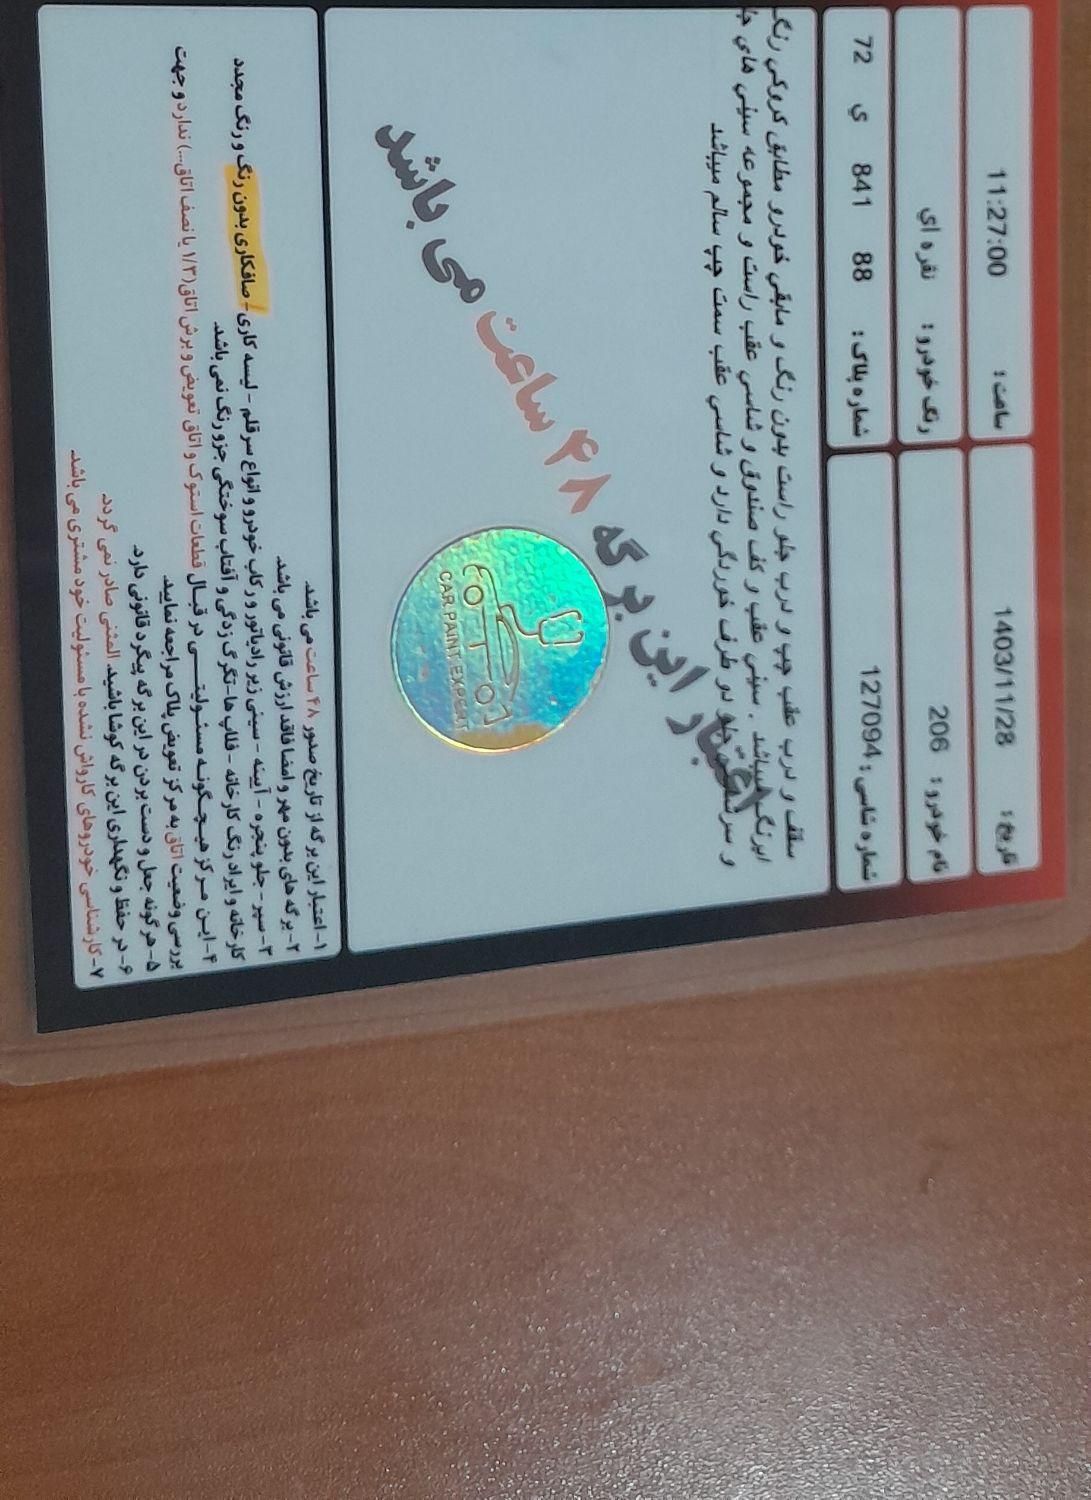 تاریخ : 1403/11/28 ساعت : 11:27:00
نام خودرو : 206 رنگ خودرو : نقره اي
شماره شاسی : 127094 شماره پلاک : 88 841 ي 72
سقف و درب عقب چپ و درب جلو راست بدون رنگ و مابقي خودرو مطابق کروکي رنگ
میباشد . سیني عقب و کف صندوق و شاسي عقب راست و مجموعه سیني هاي
و سر دو طرف خوردگي دارد و شاسي عقب سمت چپ سالم میباشد
اعتبار این برگه ۴۸ ساعت می باشد
CAR PAINT EXPERT
۱- اعتبار این برگه از تاریخ صدور ۴۸ ساعت می باشد.
۲- برگه های بدون مهر و امضا فاقد ارزش قانونی می باشد.
۳- سپر - جلو پنجره - آیینه - سینی زیر رادیاتور و رکاب خودرو و انواع سرقلم - لیسه کاری - صافکاری بدون رنگ و رنگ مجدد
کارخانه و ایراد رنگ کارخانه - قلاپ ها - تگرگ زدگی و آفتاب سوختگی جزو رنگ نمی باشد.
۴- ایـن مـرکز هیـچـگونـه مسئـولیتـــی در قبـال قطعات استوک و اتاق تعویض و برش اتاق (۱/۳ یا نصف اتاق...) ندارد و جهت
بررسی وضعیت اتاق به مرکز تعویض پلاک مراجعه نمایید.
۵- هرگونه جعل و دست بردن در این برگه پیگرد قانونی دارد.
۶- در حفظ و نگهداری این برگه کوشا باشید. المثنی صادر نمی گردد.
۷- کارشناسی خودروهای کارواش نشده با مسئولیت خود مشتری می باشد.